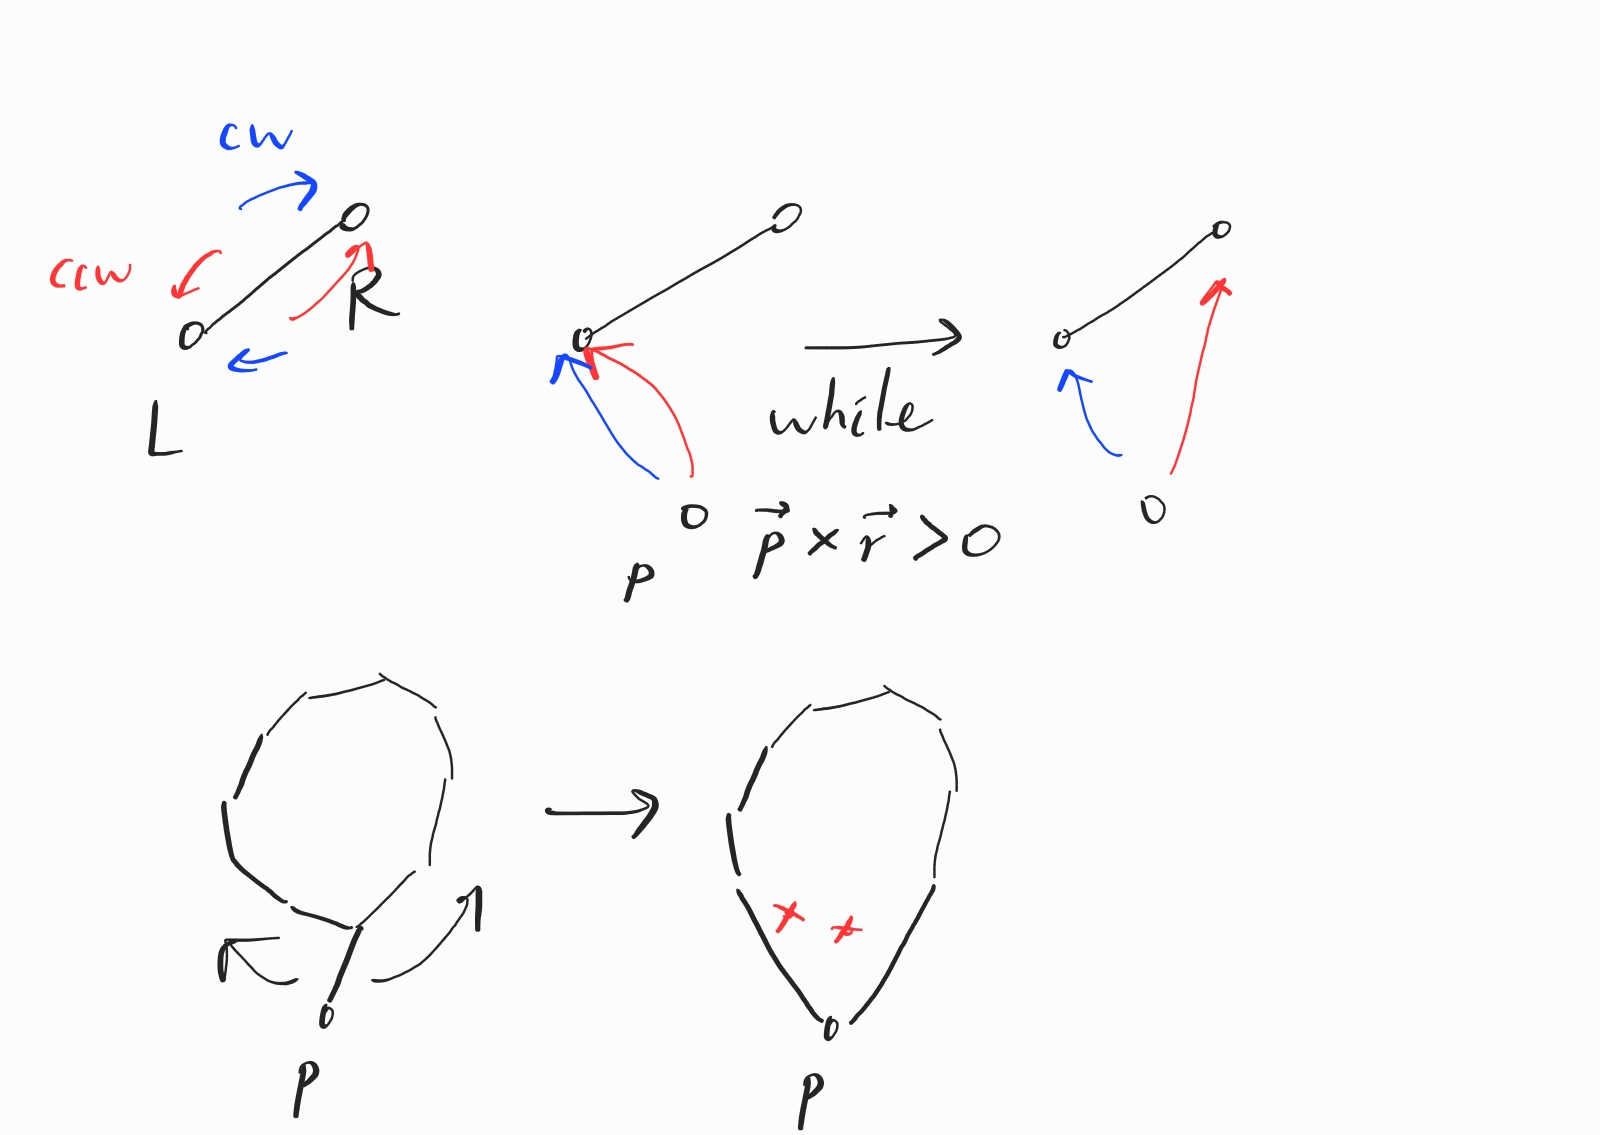 cw
ccw
R
L
while
p
p⃗ × r⃗ > 0
p
p